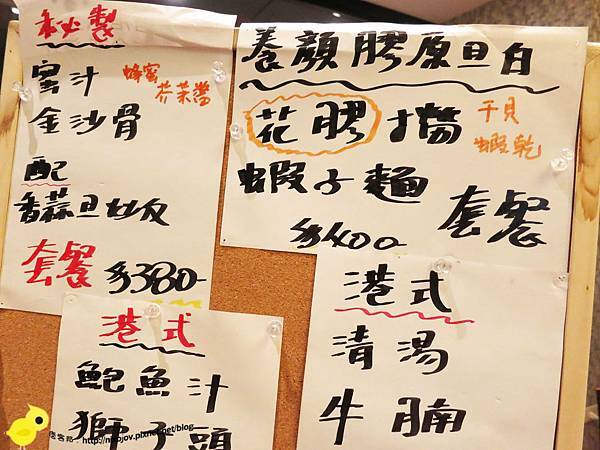 秘製
蜜汁
蜂蜜
芥茉醬
金沙骨
配
香蒜旦炒反
套餐 $380-
養顏膠原旦白
花膠撈
干貝
蝦乾
蝦子麵
套餐
$400-
港式
鮑魚汁
獅子頭
港式
清湯
牛腩